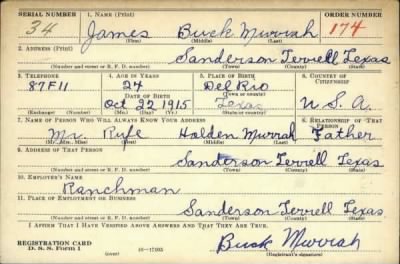 SERIAL NUMBER 1. NAME (Print) ORDER NUMBER
34 James Buck Murrah 174
(First) (Middle) (Last)
2. ADDRESS (Print)
Sanderson Terrell Texas
(Number and street or R. F. D. number) (Town) (County) (State)
3. TELEPHONE 4. AGE IN YEARS 5. PLACE OF BIRTH 6. COUNTRY OF CITIZENSHIP
87F11 24 Del Rio
DATE OF BIRTH (Town or county)
Oct 22 1915 Texas U.S.A.
(Exchange) (Number) (Mo.) (Day) (Yr.) (State or country)
7. NAME OF PERSON WHO WILL ALWAYS KNOW YOUR ADDRESS 8. RELATIONSHIP OF THAT PERSON
Mr. Holden Murrah Father
(Mr., Mrs., Miss) (First) (Middle) (Last)
9. ADDRESS OF THAT PERSON
Sanderson Terrell Texas
(Number and street or R. F. D. number) (Town) (County) (State)
10. EMPLOYER'S NAME
Ranchman
11. PLACE OF EMPLOYMENT OR BUSINESS
Sanderson Terrell Texas
(Number and street or R. F. D. number) (Town) (County) (State)
I AFFIRM THAT I HAVE VERIFIED ABOVE ANSWERS AND THAT THEY ARE TRUE.
REGISTRATION CARD Buck Murrah
D. S. S. Form 1 (over) (Registrant's signature)